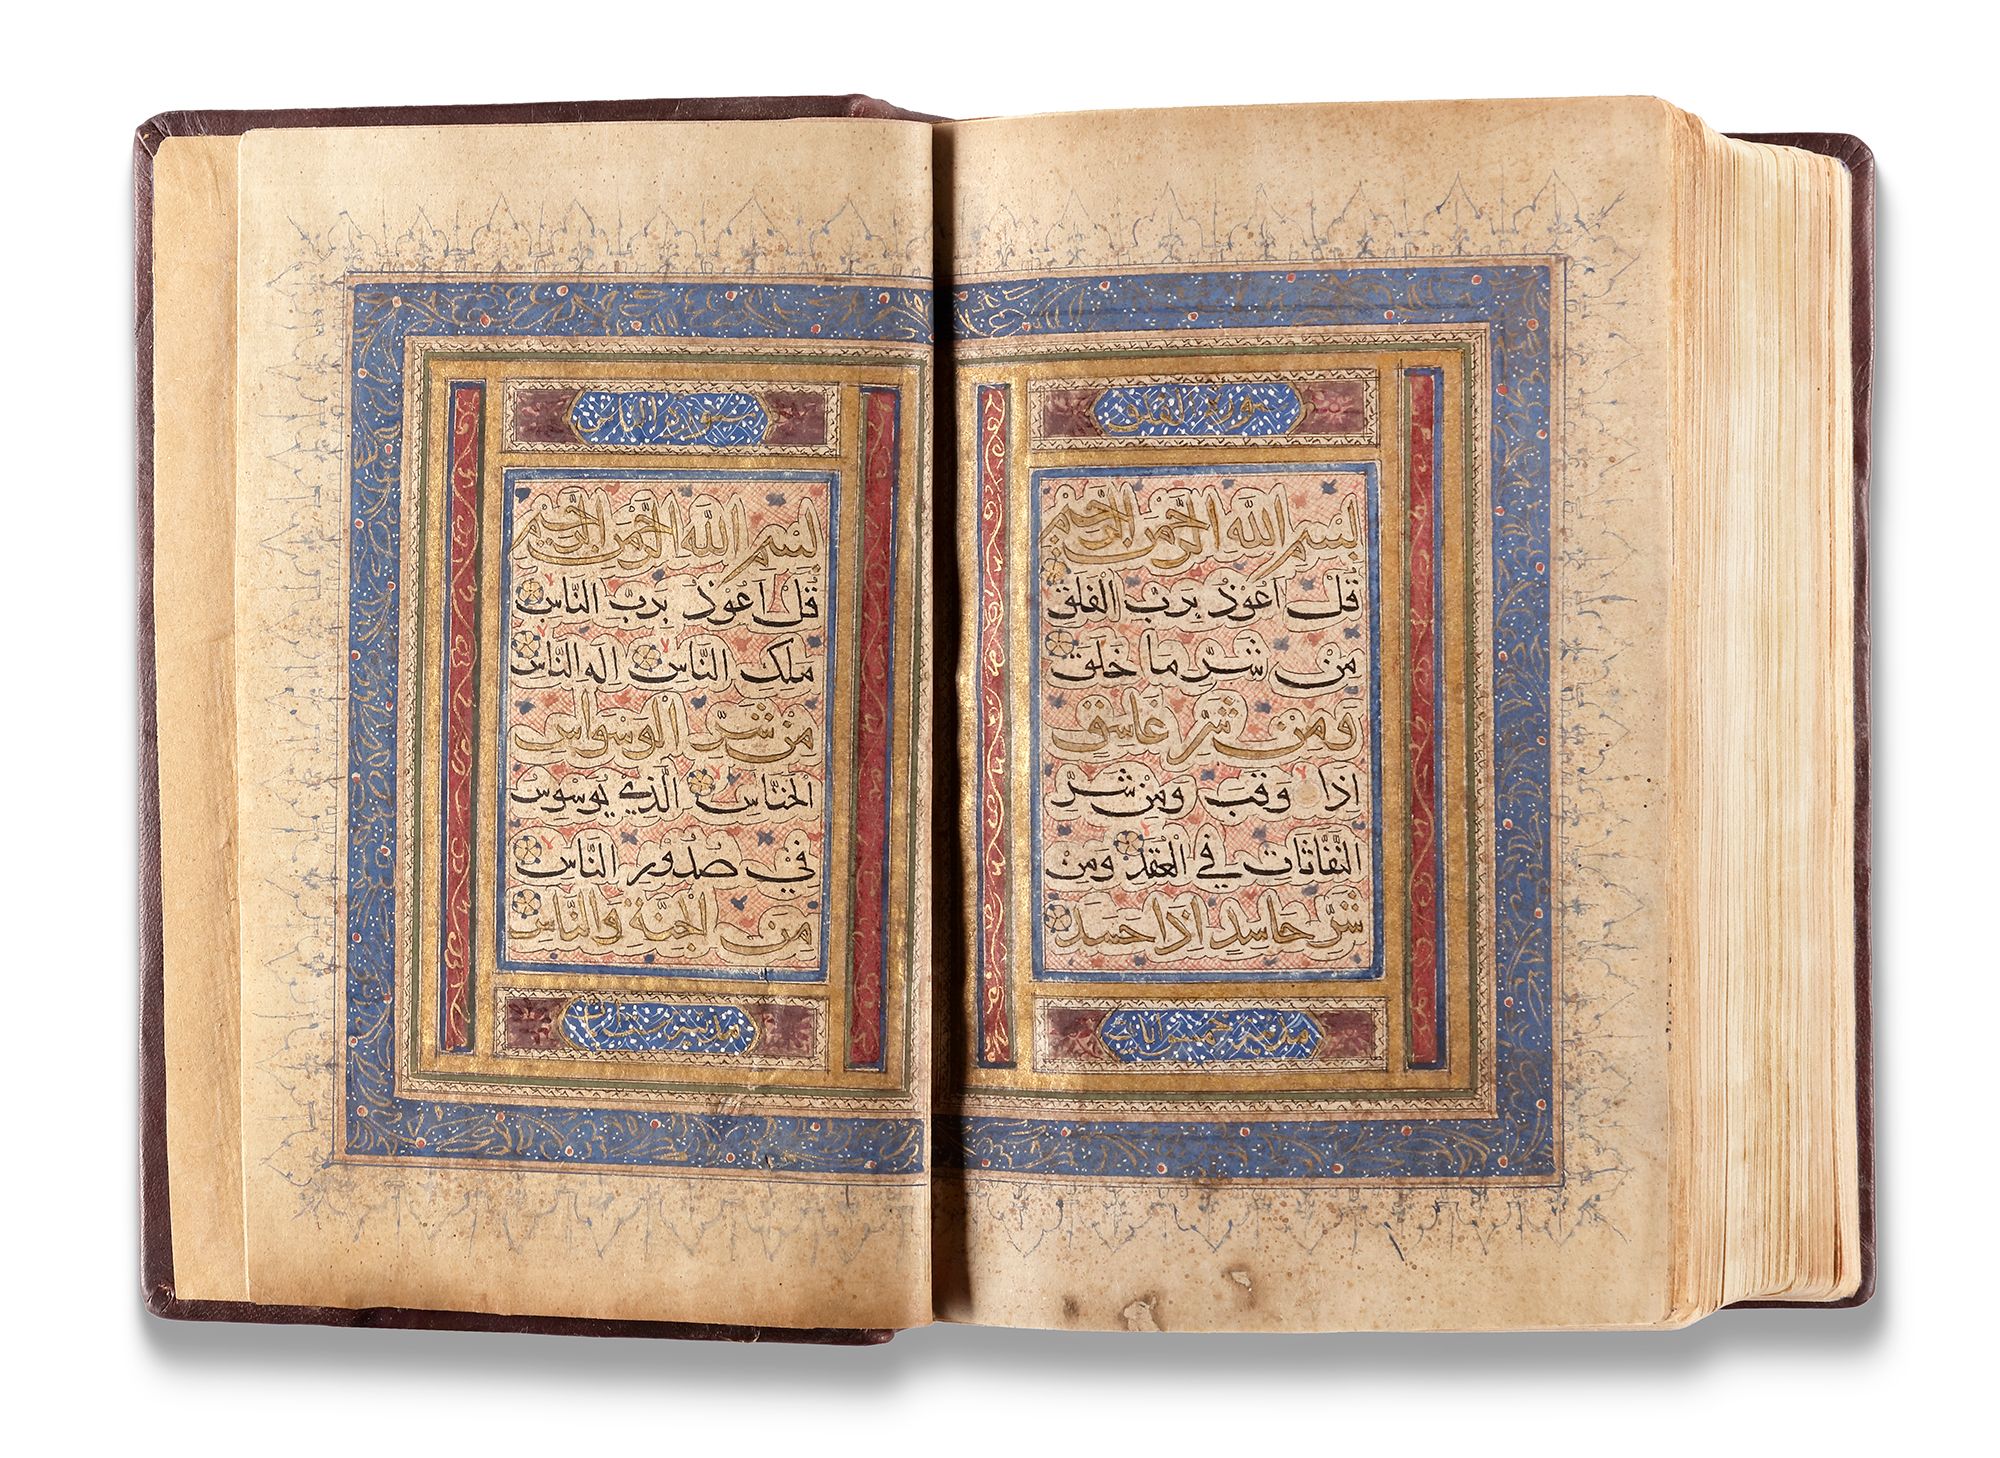 سورة الفلق
بسْمِ اللّٰه الرَّحْمٰن الرَّحيْمِ
قلْ اَعُوْذ بِرَبّ الْفلق
مِنْ شرِّ ما خلق
وَمِنْ شرّ غاسق
اذا وقبَ ومِنْ شرِّ
النَّفّاثات في العُقد ومِنْ
شرّ حاسدٍ اذا حسد
مدنية خمس ايات
سورة الناس
بسْمِ اللّٰه الرَّحْمٰن الرَّحيْمِ
قُلْ اَعُوْذ بربّ النَّاس
ملك النَّاس اله النَّاس
مِنْ شرِّ الْوسْواس
الخنَّاس الَّذيْ يُوسْوسُ
فيْ صُدُوْر النَّاس
مِن الجنّة والنَّاس
مدنية ست ايات